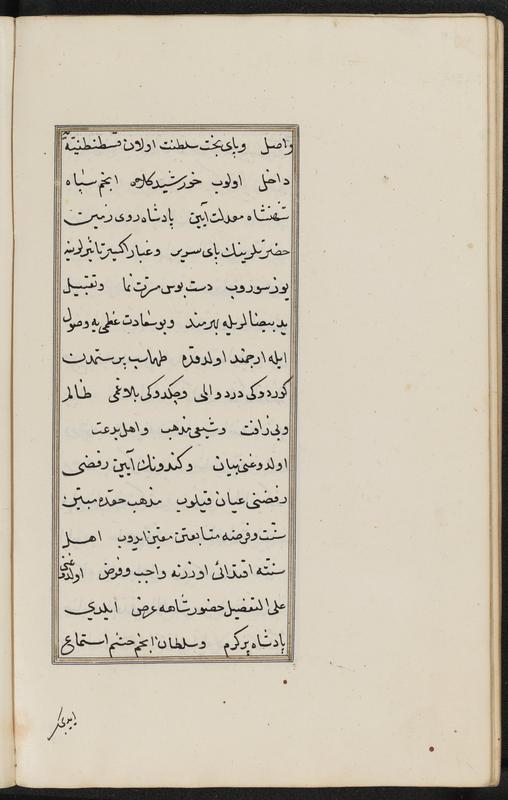 واصل وپای تخت سلطنت اولان قسطنطنیه‌یه
داخل اولوب خورشیدکلاه انجم سپاه
شهنشاه معدلت آیین پادشاه روی زمین
حضرتلرینك پای سریر وغبار اکسیر تاثیرلرینه
یوز سوروب دست بوس مسرت نما وتقبیل
ید بیضالریله بهرمند وبو سعادت عظمی‌یه وصول
ایله ارجمند اولدقده طهماسب پرستمدن
کوردوکی درد والمی وچکدوکی بلا وغمی ظالم
وبی رأفت وشیعی مذهب واهل بدعت
اولدوغنی بیان وکندونك آیین رفضی
رفضنی عیان قیلوب مذهب حقهٔ مبین
سنت وفرضه متابعتن مقین ایدوب اهل
سنته اقتدائی اوزرنه واجب وفرض اولدوغنی
علی التفصیل حضور شاهه عرض ایلدی
پادشاه پرکرم وسلطان انجم حشم استماع
ایدیجك